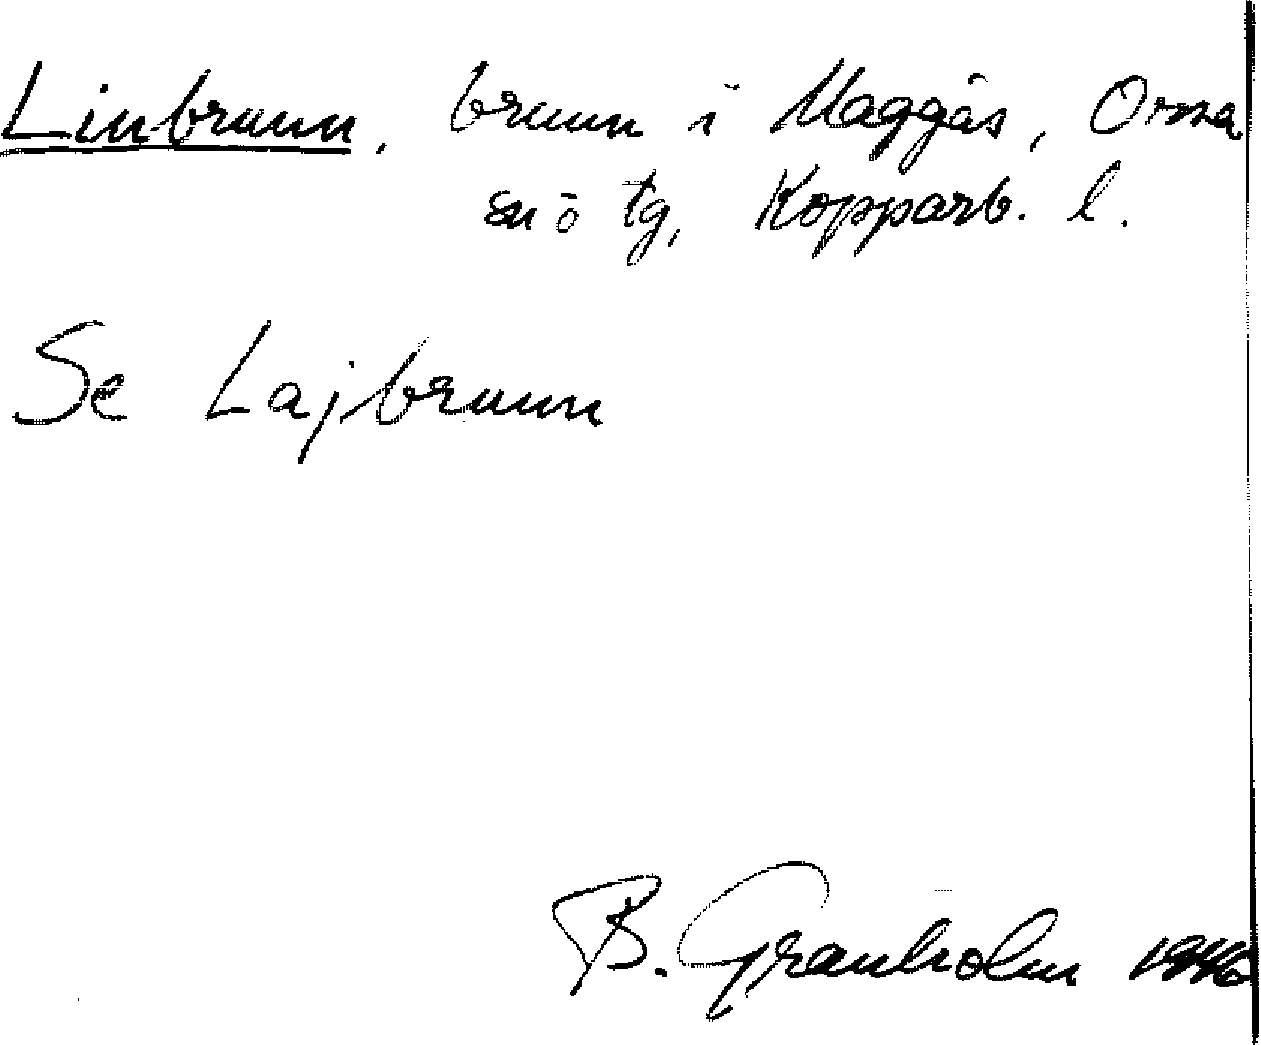 Linbrunn, brunn i Maggås, Orsa
sn ö tg, Kopparb. l.
Se Lajbrunn
B. Granholm 1946